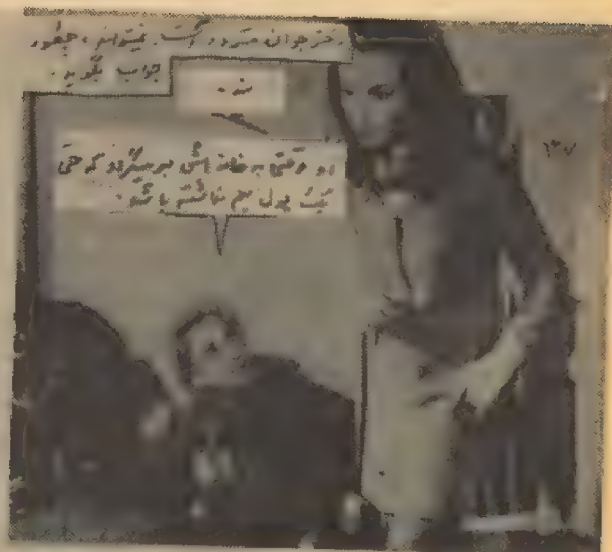 دختر جوان متردد است. نمیداند، چطور
جواب بگوید.
نه.
او وقتی به خانه اش برمیگردد که حتی
یک پول هم نداشته باشد.
۱۳۷